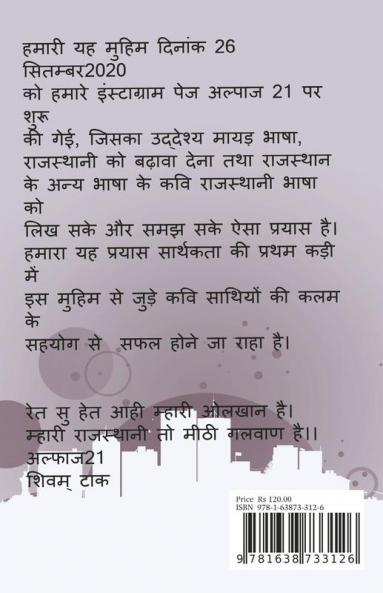 हमारी यह मुहिम दिनांक 26
सितम्बर2020
को हमारे इंस्टाग्राम पेज अल्पाज 21 पर
शुरू
की गेई, जिसका उद्देश्य मायड़ भाषा,
राजस्थानी को बढ़ावा देना तथा राजस्थान
के अन्य भाषा के कवि राजस्थानी भाषा
को
लिख सके और समझ सके ऐसा प्रयास है।
हमारा यह प्रयास सार्थकता की प्रथम कड़ी
में
इस मुहिम से जुड़े कवि साथियों की कलम
के
सहयोग से सफल होने जा राहा है।
रेत सु हेत आही म्हारी ओलखान है।
म्हारी राजस्थानी तो मीठी गलवाण है।।
अल्फाज21
शिवम् टाक
Price Rs 120.00
ISBN 978-1-63873-312-6
9 781638 733126